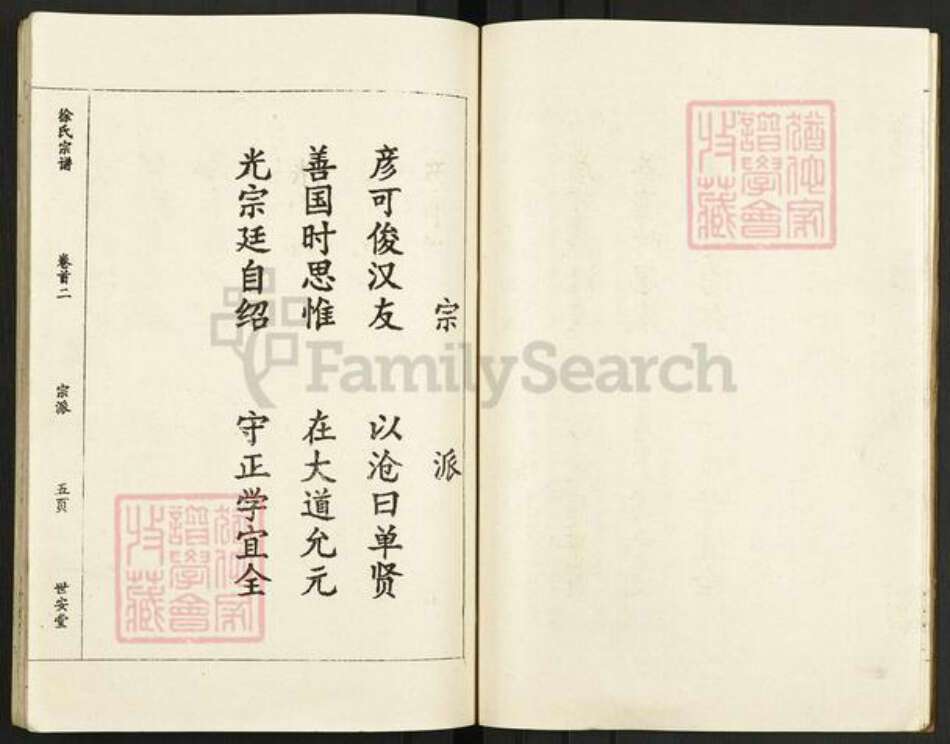 宗派
彦可俊汉友 以沧曰单贤
善国时思惟 在大道允元
光宗廷自绍 守正学宜全
徐氏宗谱 卷首二 宗派 五页 世安堂
FamilySearch